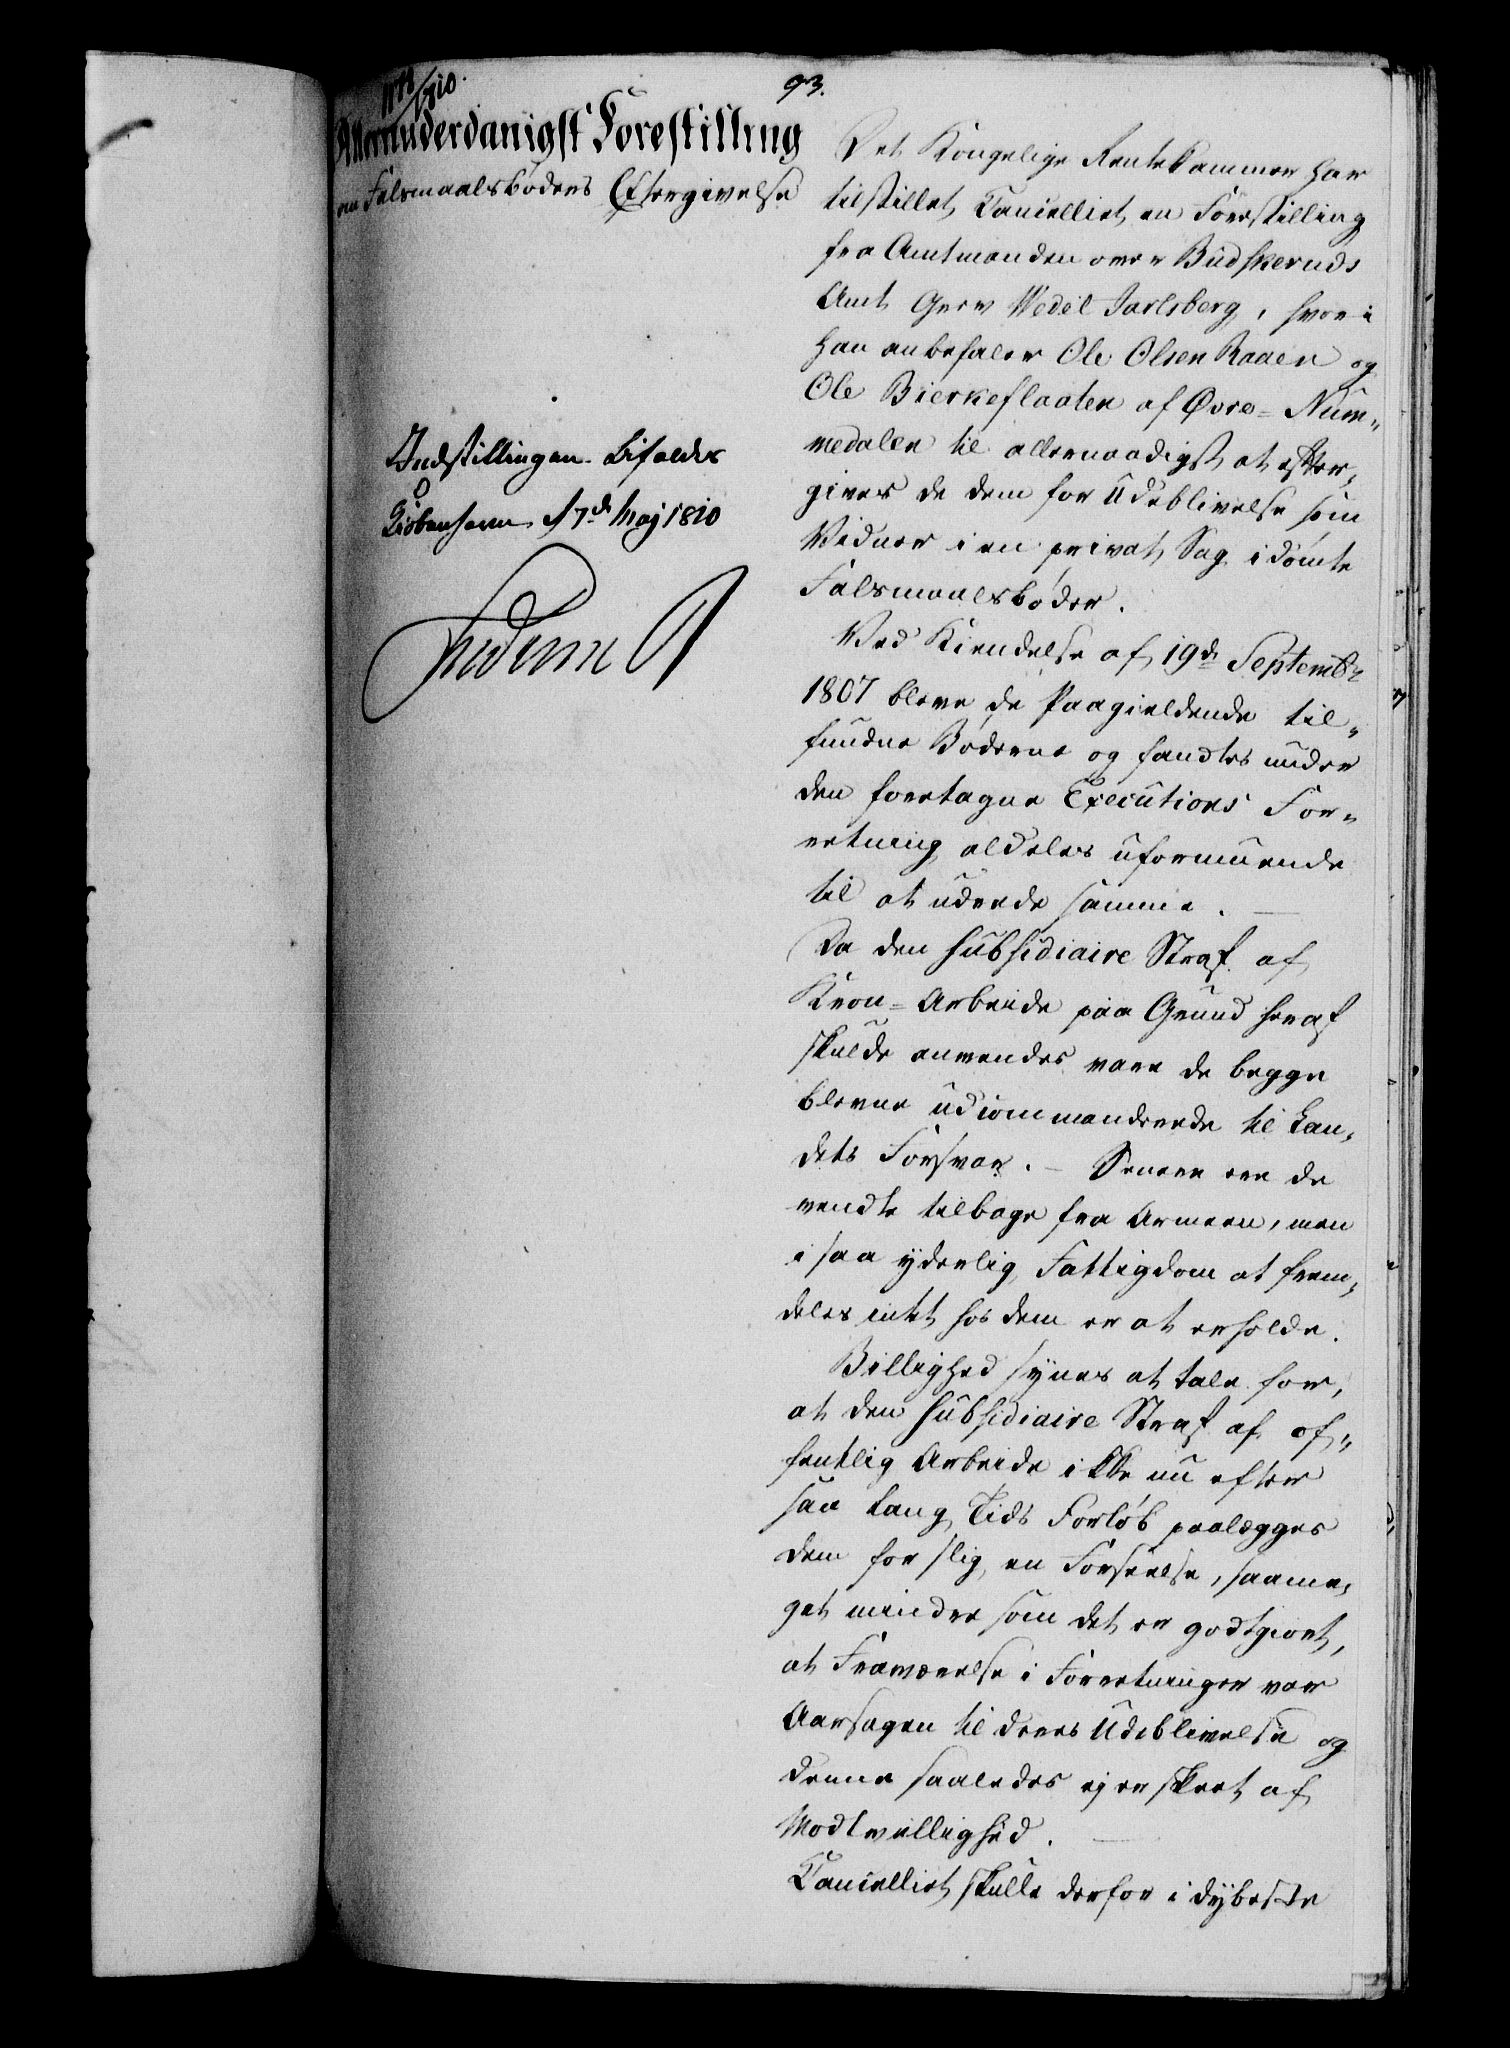 93.
1810.
Allerunderdanigst Forestilling
om Falsmaalsbøders Eftergivelse
Indstillingen bifaldes
Kiøbenhavn d 7de Maj 1810
Frederik R
Det Kongelige Rentekammer har
tilstillet Cancelliet en Forestilling
fra Amtmanden over Budskeruds
Amt Grev Wedel Jarlsberg, hvori
han anbefaler Ole Olsen Raaen og
Ole Bierkeflaaten af Øvre=Num„
medalen til allernaadigst at efter„
gives de dem for Udeblivelse som
Vidner i en privat Sag idømte
Falsmaalsbøder.
Ved Kiendelse af 19de Septembr
1807 bleve de Paagieldende til„
fundne Bøderne og fandtes under
den foretagne Executions For„
retning aldeles uformuende
til at udrede samme. —
Da den subsidiaire Straf af
Kron=Arbeide paa Grund heraf
skulde anvendes vare de begge
blevne udcommanderede til Lan„
dets Forsvar. — Senere ere de
vendte tilbage fra Armeen, men
i saa yderlig Fattigdom at frem„
deles intet hos dem er at erholde.
Billighed synes at tale for,
at den subsidiaire Straf af of„
fentlig Arbeide ikke nu efter
saa lang Tids Forløb paalægges
dem for slig en Forseelse, saame„
get mindre som det er godtgiort,
at Fraværelse i Forretninger var
Aarsagen til deres Udeblivelse og
denne saaledes ej er skeet af
Modtvillighed. —
Cancelliet skulle derfor i dybeste